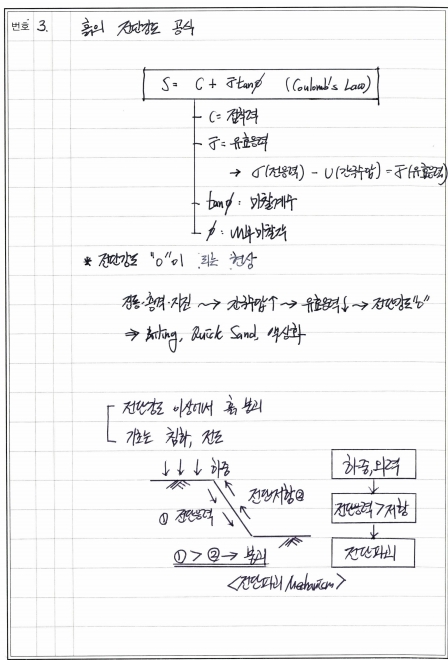 번호 3. 흙의 전단강도 공식
S = C + σ̄ tanø (Coulomb's Law)
C = 점착력
σ̄ = 유효응력
→ σ(전응력) - U(간극수압) = σ̄(유효응력)
tanø : 마찰계수
ø : 내부마찰각
* 전단강도 "0"이 되는 현상
진동·충격·지진 ~> 간극수압↑ → 유효응력↓ → 전단강도"0"
⇒ Boiling, Quick Sand, 액상화
전단강도 이상에서 흙 붕괴
기초는 침하, 전도
↓ ↓ ↓ 하중
전단저항②
① 전단응력
① > ② → 붕괴
<전단파괴 Mechanism>
하중, 외력
전단응력 > 저항
전단파괴